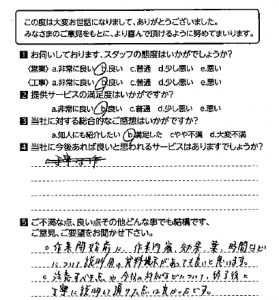 この度は大変お世話になりまして、ありがとうございました。
みなさまのご意見をもとに、より喜んで頂けるように努めてまいります。
1 お伺いしております、スタッフの態度はいかがでしょうか?
(営業) a.非常に良い b.良い c.普通 d.少し悪い e.悪い
(工事) a.非常に良い b.良い c.普通 d.少し悪い e.悪い
2 提供サービスの満足度はいかがですか?
a.非常に良い b.良い c.普通 d.少し悪い e.悪い
3 当社に対する総合的なご感想はいかがですか?
a.知人にも紹介したい b.満足した c.やや不満 d.大変不満
4 当社に今後あれば良いと思われるサービスはありますでしょうか?
5 ご不満な点、良い点その他どんな事でも結構です、
ご意見、ご要望をお聞かせ下さい。
○作業開始前に、作業内容、効果、薬、時間など
について説明用の資料提示があっても良いと思います。
○注意すべき点や今後の対応などについて、終了後に
丁寧に説明い頂けた点は良かったです。